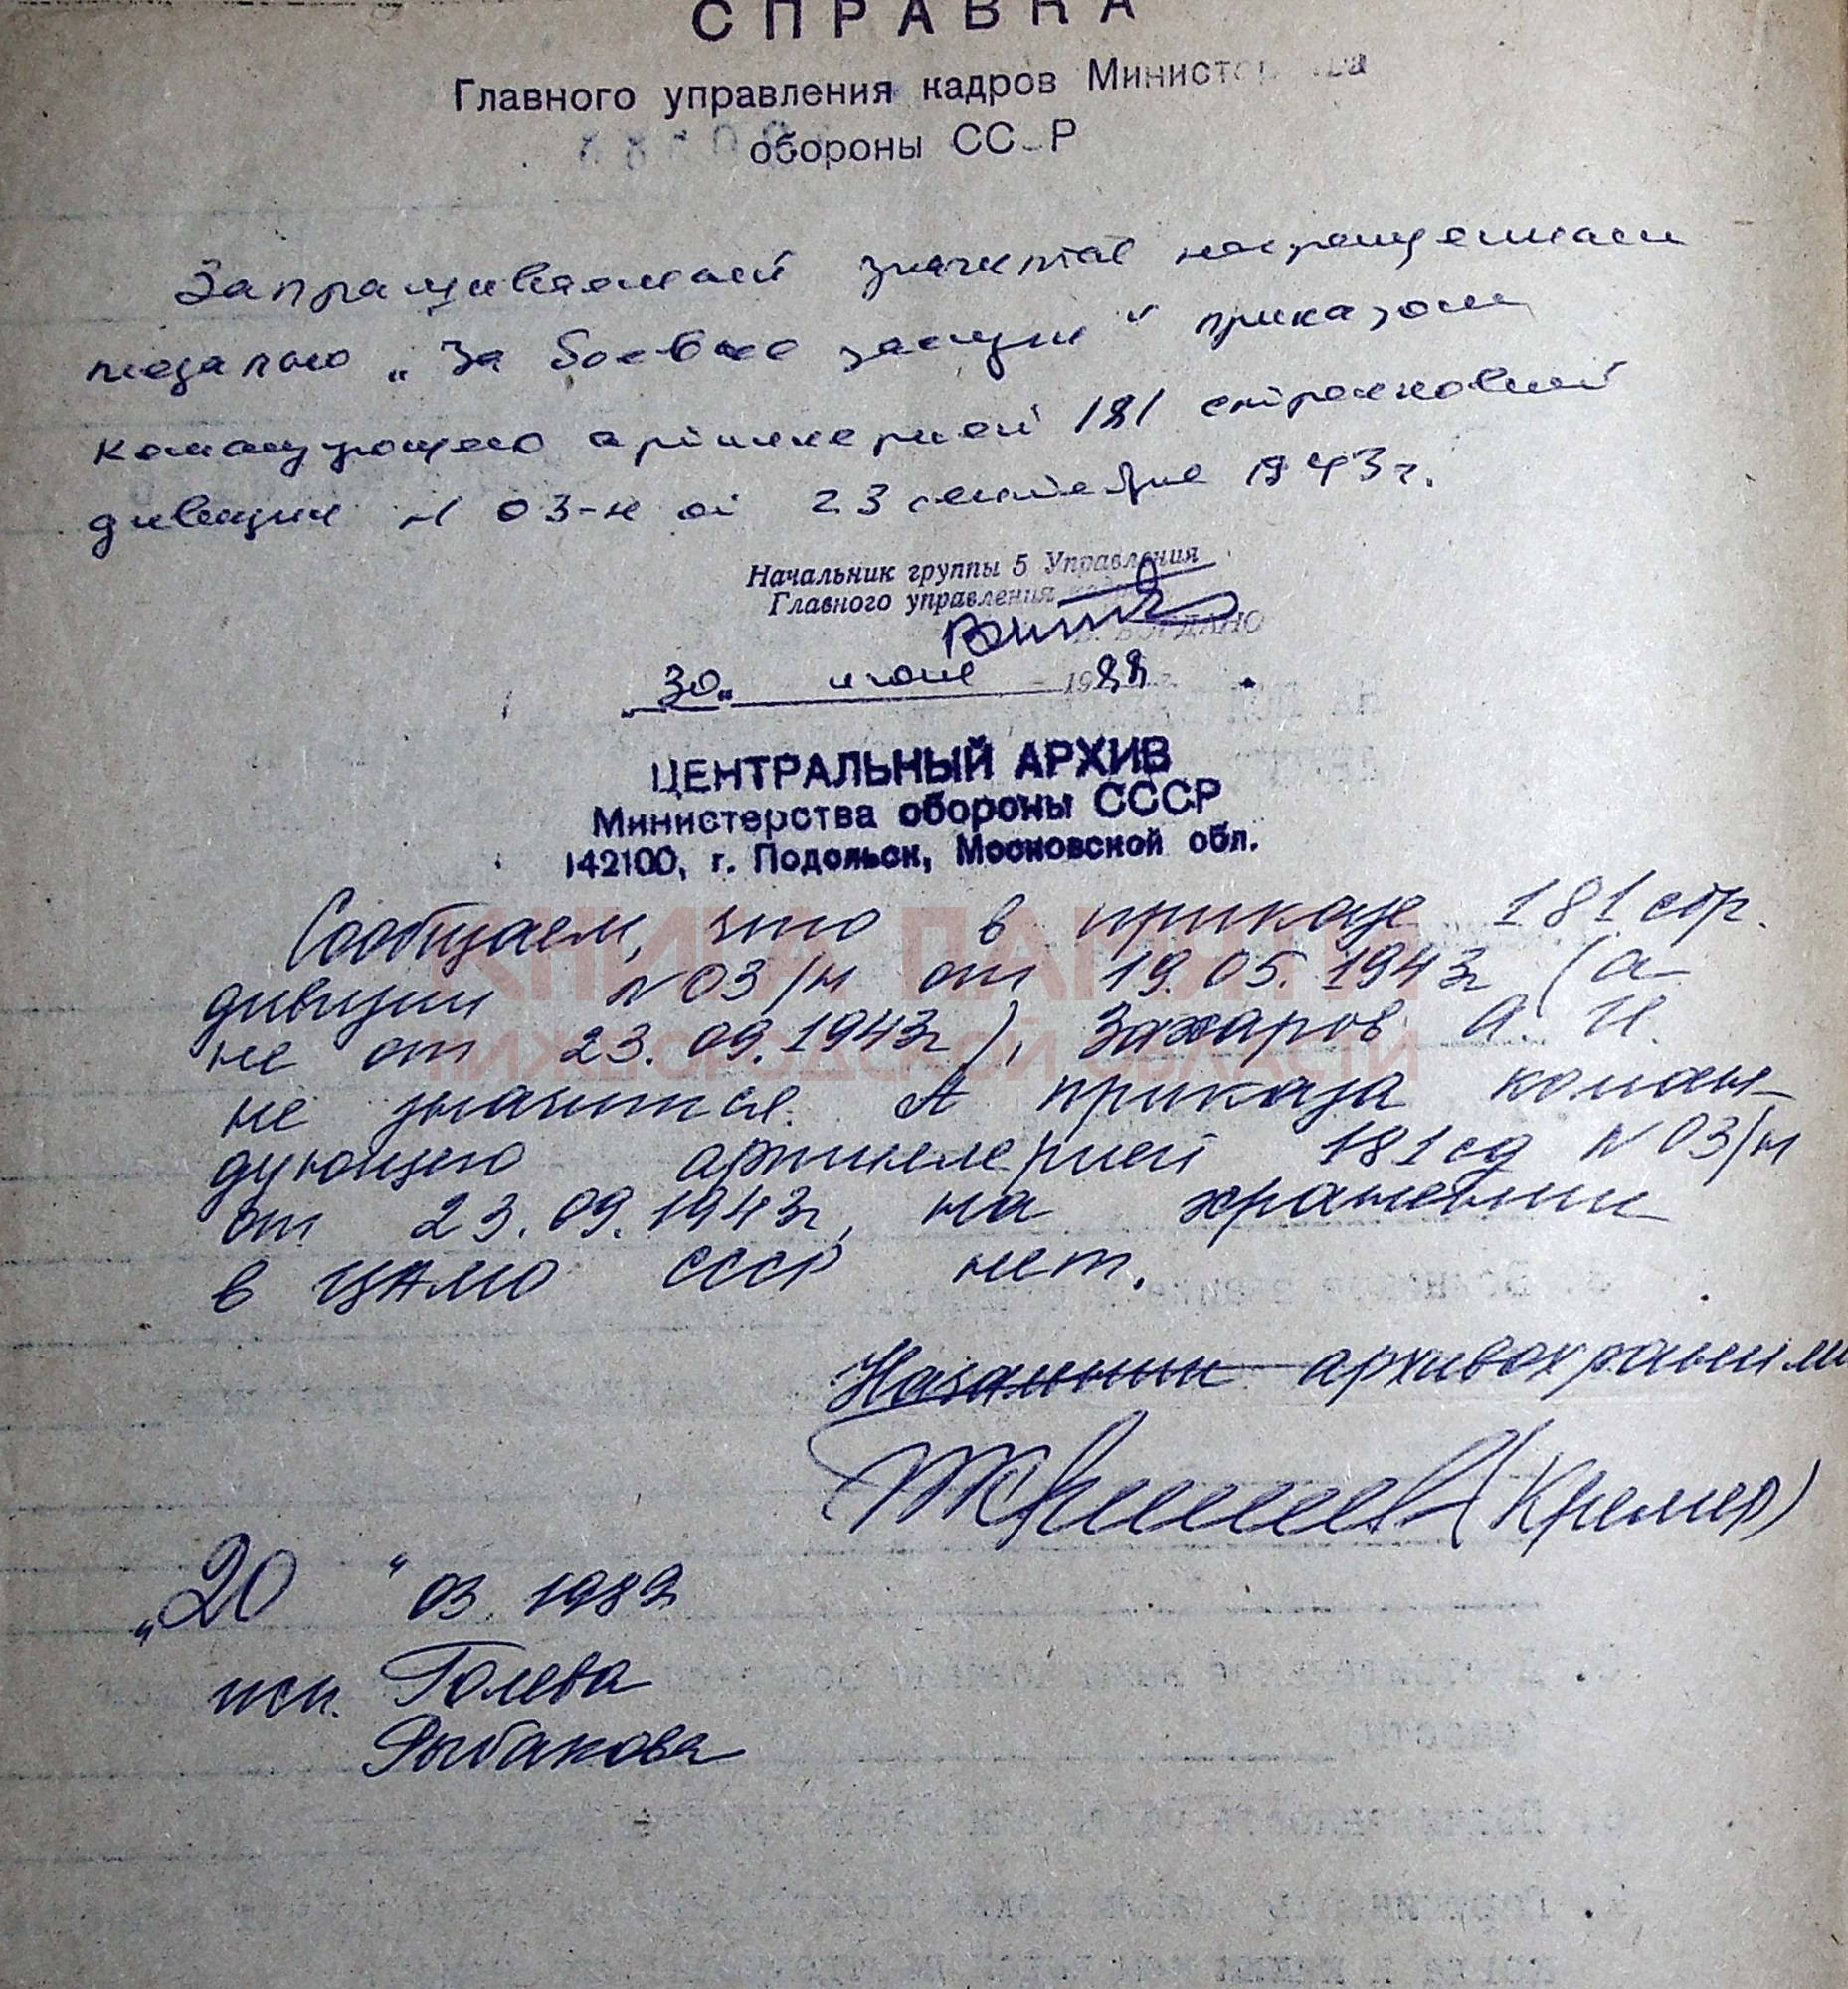 СПРАВКА
Главного управления кадров Министерства
обороны СССР
Запрашиваемый значится награжденным
медалью „За боевые заслуги“ приказом
командующего артиллерией 181 стрелковой
дивизии N 03-н от 23 сентября 1943 г.
Начальник группы 5 Управления
Главного управления кадров
В. БОГДАНО
„30“ июня 1988 г.
ЦЕНТРАЛЬНЫЙ АРХИВ
Министерства обороны СССР
142100, г. Подольск, Московской обл.
Сообщаем, что в приказе 181 стр.
дивизии N 03/н от 19.05.1943г (а
не от 23.09.1943г), Захаров А. И.
не значится. А приказа коман-
дующего артиллерией 181 сд N 03/н
от 23.09.1943г, на хранении
в ЦАМО СССР нет.
Начальник архивохранили
(Кремер)
„20“ 03. 1989
исп. Голева
Рыбакова
КНИГА ПАМЯТИ
НИЖЕГОРОДСКОЙ ОБЛАСТИ